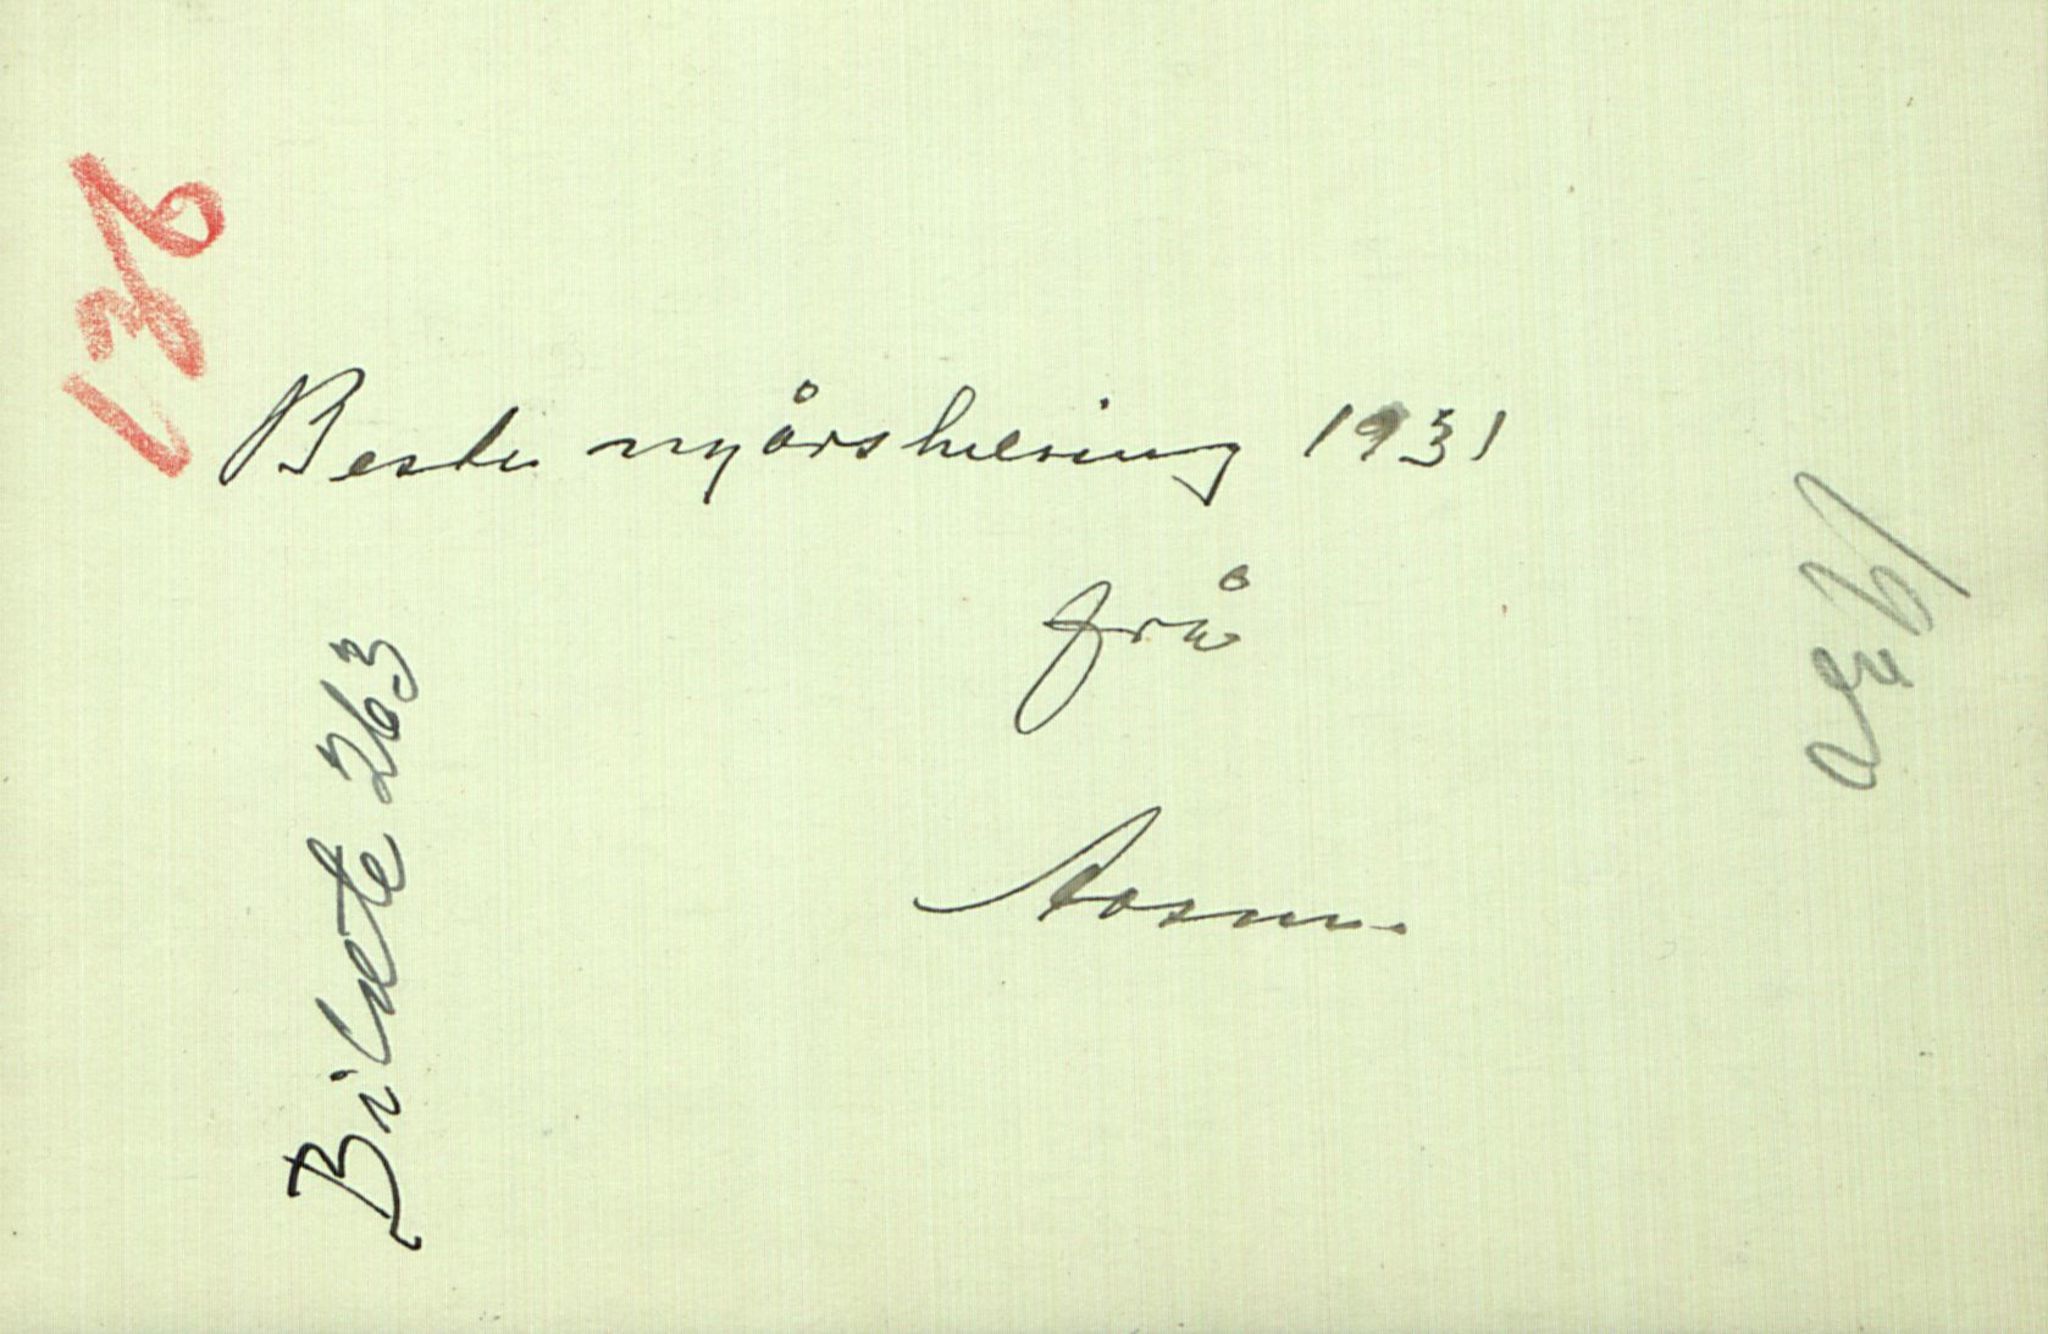 136
Beste nyårshelsing 1931
frå
Aasmu.
Bilæte 263